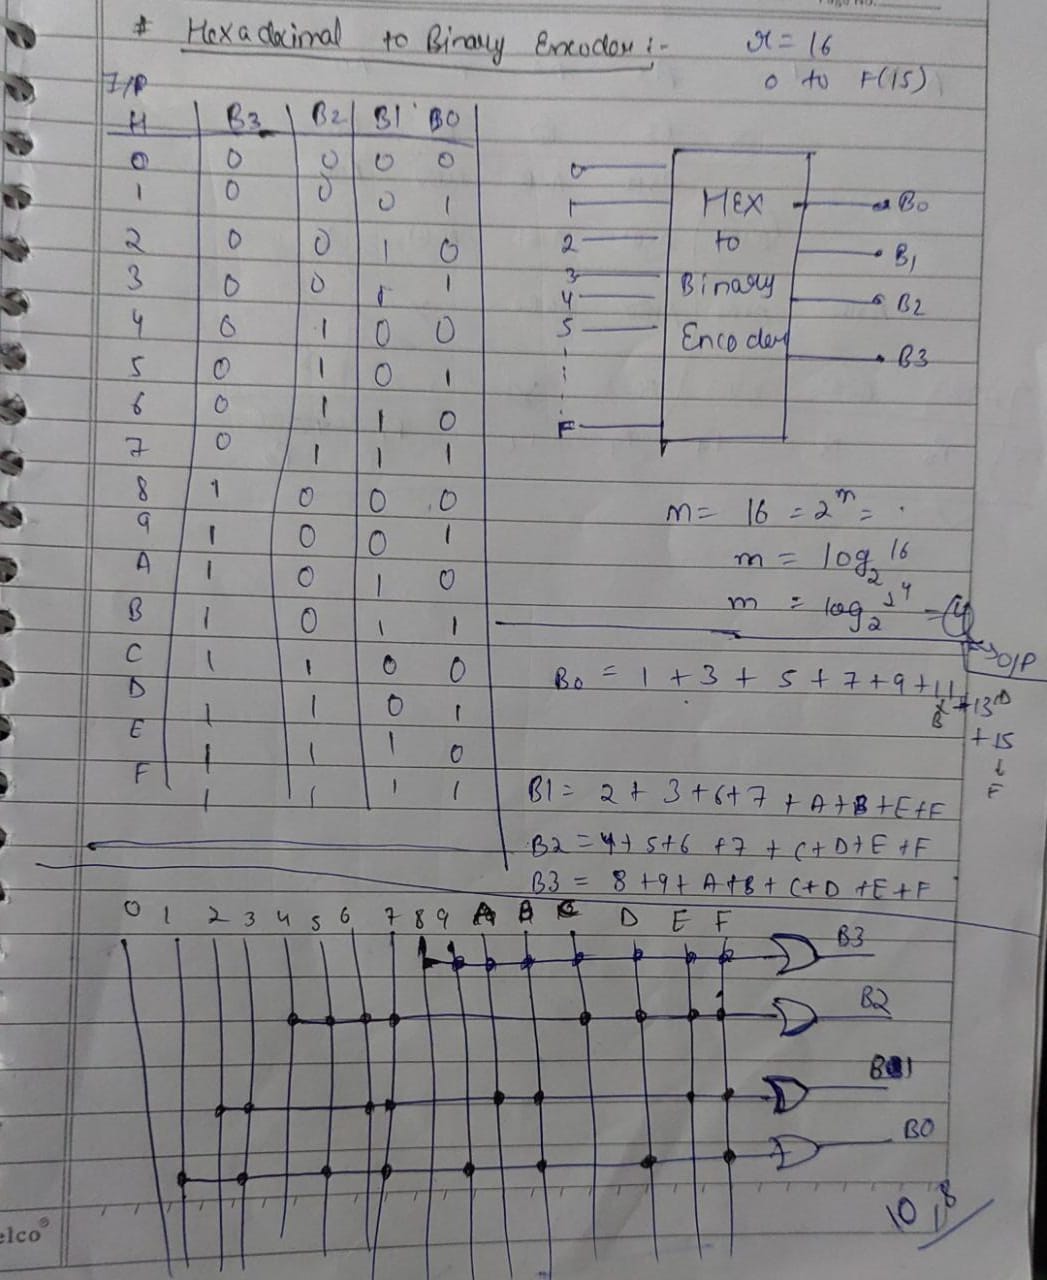 # Hexadecimal to Binary Encoder :-
r = 16
0 to F(15)
I/P
H B3 B2 B1 B0
0 0 0 0 0
1 0 0 0 1
2 0 0 1 0
3 0 0 1 1
4 0 1 0 0
5 0 1 0 1
6 0 1 1 0
7 0 1 1 1
8 1 0 0 0
9 1 0 0 1
A 1 0 1 0
B 1 0 1 1
C 1 1 0 0
D 1 1 0 1
E 1 1 1 0
F 1 1 1 1
0
1
2
3
4
5
F
HEX
to
Binary
Encoder
B0
B1
B2
B3
m = 16 = 2^m =
m = log2 16
m = log2 2^4 = 4
O/P
B0 = 1 + 3 + 5 + 7 + 9 + 11 + 13 + 15
B D
F
B1 = 2 + 3 + 6 + 7 + A + B + E + F
B2 = 4 + 5 + 6 + 7 + C + D + E + F
B3 = 8 + 9 + A + B + C + D + E + F
0 1 2 3 4 5 6 7 8 9 A B C D E F
B3
B2
B1
B0
elco®